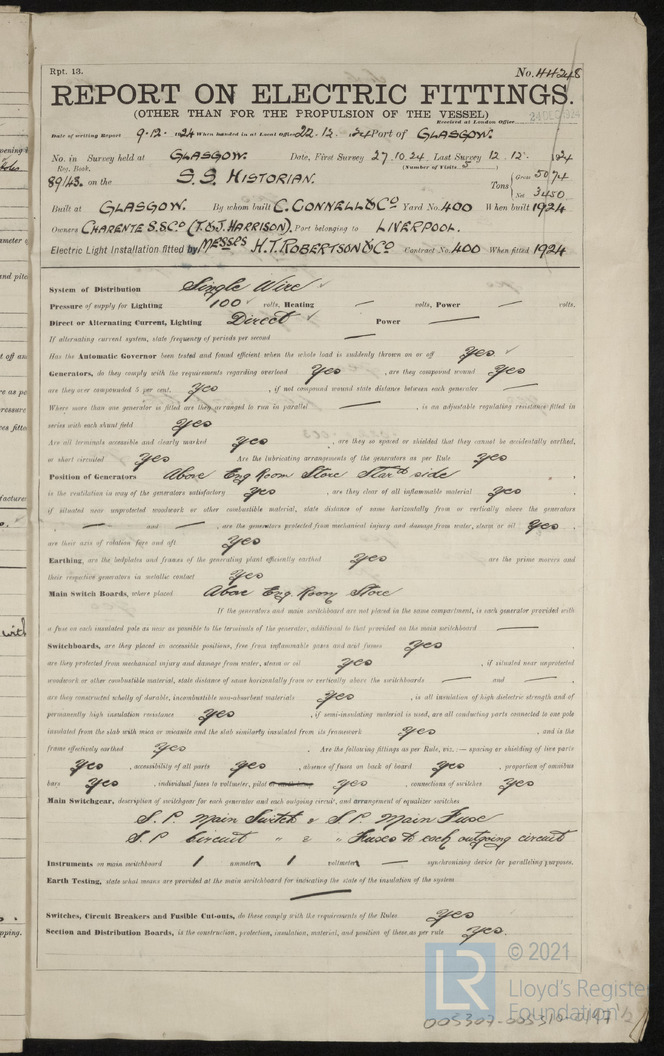 Rpt. 13.
No. 44248
REPORT ON ELECTRIC FITTINGS.
(OTHER THAN FOR THE PROPULSION OF THE VESSEL)
Received at London Office
Date of writing Report 9.12. 1924 When handed in at Local Office 22.12. 24 Port of GLASGOW.
No. in Survey held at GLASGOW. Date, First Survey 27.10.24 Last Survey 12.12. 1924
Reg. Book. (Number of Visits 5
89143. on the S.S. HISTORIAN. Tons { Gross 5074
Net 3450
Built at GLASGOW. By whom built C. CONNELL & Co Yard No. 400 When built 1924
Owners CHARENTE S.S.Co (T. & J. HARRISON). Port belonging to LIVERPOOL.
Electric Light Installation fitted by MESSRS H.T. ROBERTSON & Co Contract No. 400 When fitted 1924
System of Distribution Single Wire
Pressure of supply for Lighting 100 volts, Heating — volts, Power — volts.
Direct or Alternating Current, Lighting Direct Power —
If alternating current system, state frequency of periods per second —
Has the Automatic Governor been tested and found efficient when the whole load is suddenly thrown on or off Yes
Generators, do they comply with the requirements regarding overload Yes , are they compound wound Yes
are they over compounded 5 per cent. Yes , if not compound wound state distance between each generator —
Where more than one generator is fitted are they arranged to run in parallel — , is an adjustable regulating resistance fitted in
series with each shunt field Yes
Are all terminals accessible and clearly marked Yes , are they so spaced or shielded that they cannot be accidentally earthed,
or short circuited Yes Are the lubricating arrangements of the generators as per Rule Yes
Position of Generators Above Eng Room Store Starbd side
is the ventilation in way of the generators satisfactory Yes , are they clear of all inflammable material Yes ,
if situated near unprotected woodwork or other combustible material, state distance of same horizontally from or vertically above the generators
— and — , are the generators protected from mechanical injury and damage from water, steam or oil Yes ,
are their axis of rotation fore and aft Yes
Earthing, are the bedplates and frames of the generating plant efficiently earthed Yes are the prime movers and
their respective generators in metallic contact Yes
Main Switch Boards, where placed Above Eng. Room Store
If the generators and main switchboard are not placed in the same compartment, is each generator provided with
a fuse on each insulated pole as near as possible to the terminals of the generator, additional to that provided on the main switchboard —
Switchboards, are they placed in accessible positions, free from inflammable gases and acid fumes Yes ,
are they protected from mechanical injury and damage from water, steam or oil Yes , if situated near unprotected
woodwork or other combustible material, state distance of same horizontally from or vertically above the switchboards — and — ,
are they constructed wholly of durable, incombustible non-absorbent materials Yes , is all insulation of high dielectric strength and of
permanently high insulation resistance Yes , if semi-insulating material is used, are all conducting parts connected to one pole
insulated from the slab with mica or micanite and the slab similarly insulated from its framework Yes , and is the
frame effectively earthed Yes . Are the following fittings as per Rule, viz.: — spacing or shielding of live parts
Yes , accessibility of all parts Yes , absence of fuses on back of board Yes , proportion of omnibus
bars Yes , individual fuses to voltmeter, pilot Yes , connections of switches Yes
Main Switchgear, description of switchgear for each generator and each outgoing circuit, and arrangement of equalizer switches
S.P. Main Switch & S.P. Main Fuse
S.P Circuit " & " Fuses to each outgoing circuit
Instruments on main switchboard 1 ammeter 1 voltmeter — synchronizing device for paralleling purposes.
Earth Testing, state what means are provided at the main switchboard for indicating the state of the insulation of the system
—
Switches, Circuit Breakers and Fusible Cut-outs, do these comply with the requirements of the Rules Yes
Section and Distribution Boards, is the construction, protection, insulation, material, and position of these as per rule Yes.
LR
© 2021
Lloyd's Register
Foundation
005307-005310-0197 1/2